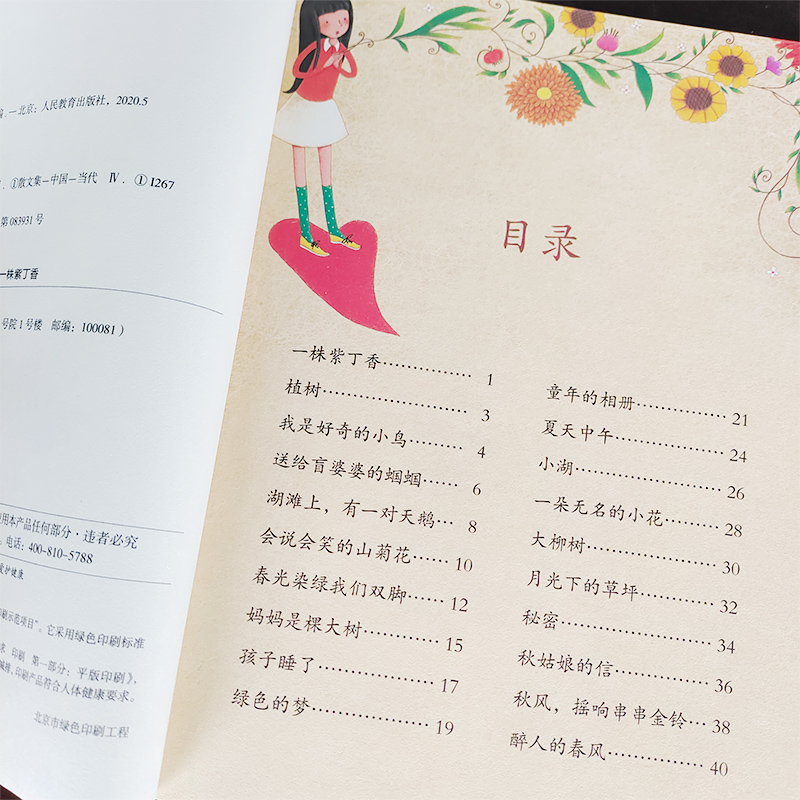 编.—北京：人民教育出版社，2020.5
①散文集－中国－当代 Ⅳ．①I267
第 083931 号
一株紫丁香
号院1号楼 邮编：100081）
使用本产品任何部分·违者必究
电话：400-810-5788
爱护健康
印刷示范项目”。它采用绿色印刷标准
求 印刷 第一部分：平版印刷》，
印刷产品符合人体健康要求。
北京市绿色印刷工程
目录
一株紫丁香……………1
植树……………3
我是好奇的小鸟………4
送给盲婆婆的蝈蝈……6
湖滩上，有一对天鹅…8
会说会笑的山菊花……10
春光染绿我们双脚……12
妈妈是棵大树………15
孩子睡了……………17
绿色的梦……………19
童年的相册……………21
夏天中午……………24
小湖……………26
一朵无名的小花………28
大柳树……………30
月光下的草坪………32
秘密……………34
秋姑娘的信…………36
秋风，摇响串串金铃…38
醉人的春风…………40